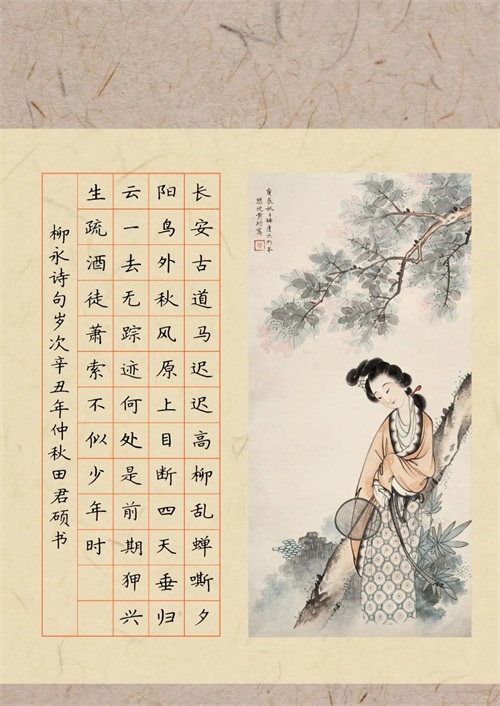 长安古道马迟迟高柳乱蝉嘶夕
阳鸟外秋风原上目断四天垂归
云一去无踪迹何处是前期狎兴
生疏酒徒萧索不似少年时
柳永诗句岁次辛丑年仲秋田君硕书